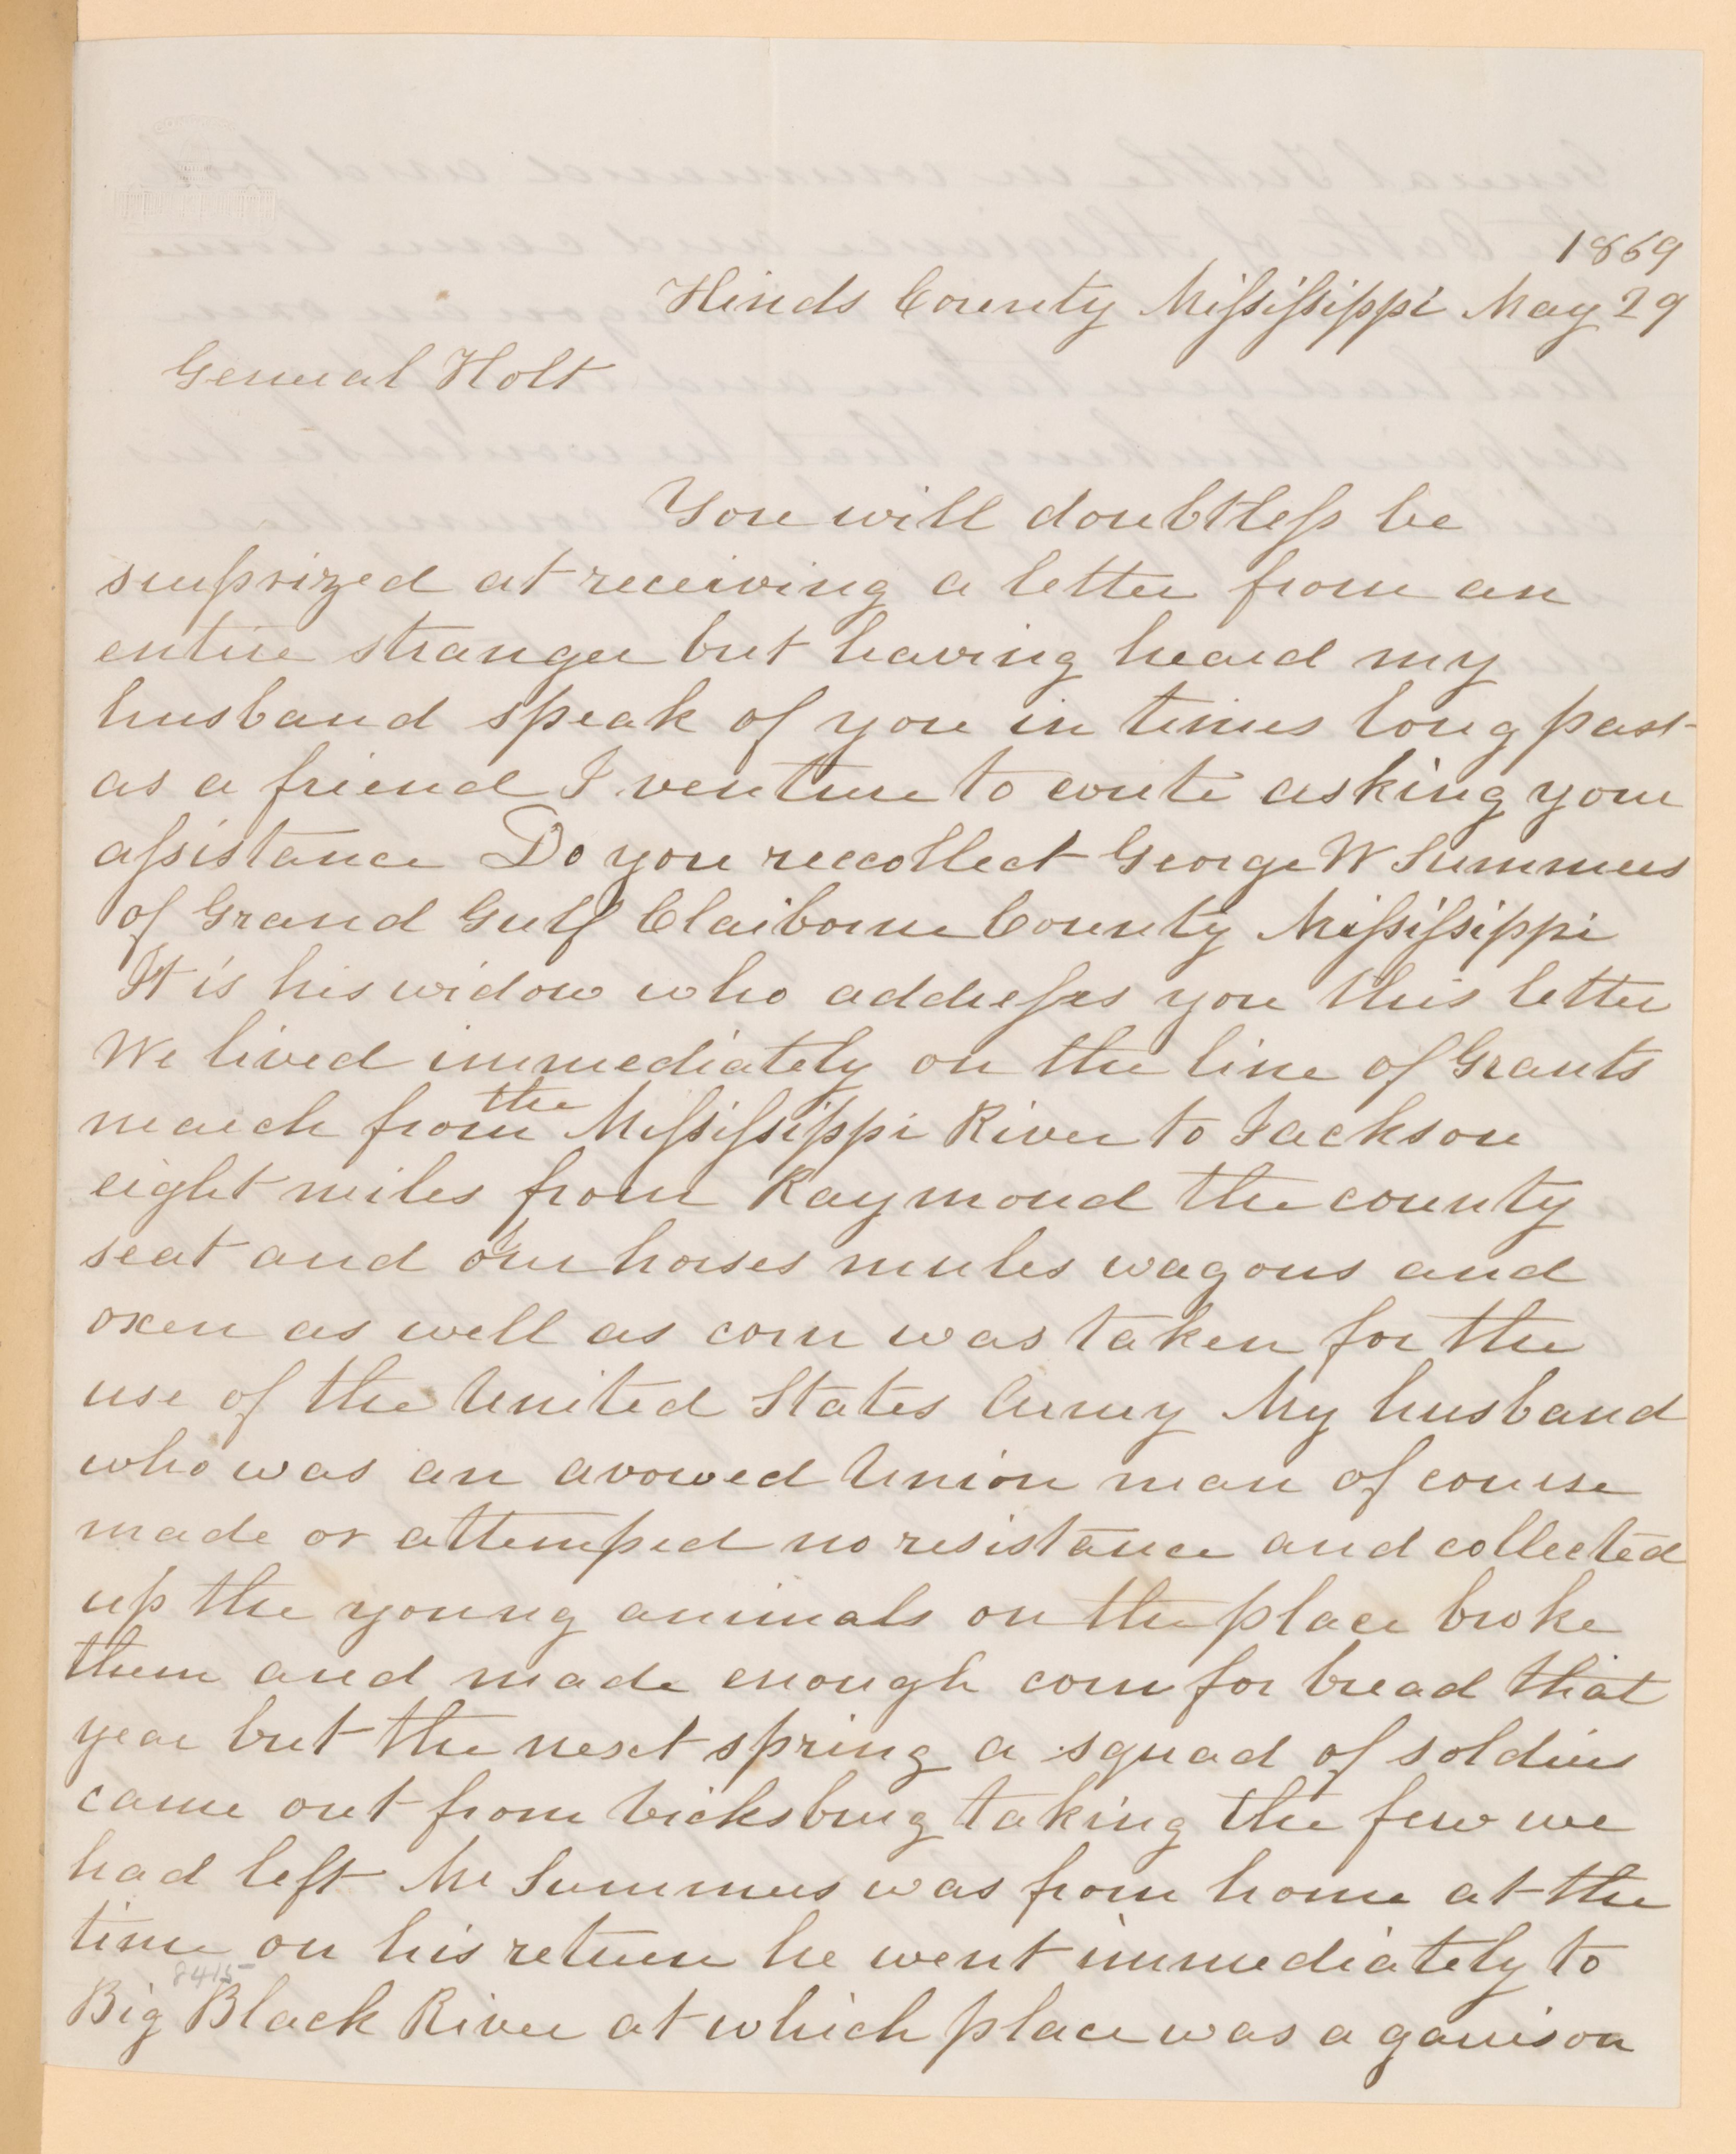 1869
Hinds County Mississippi May 29
General Holt
You will doubtless be
surprized at receiving a letter from an
entire stranger but having heard my
husband speak of you in times long past
as a friend I venture to write asking your
assistance Do you reccollect George W Summers
of Grand Gulf Claiborne County Mississippi
It is his widow who addresses you this letter
We lived immediately on the line of Grants
march from the Mississippi River to Jackson
eight miles from Raymond the county
seat and our horses mules wagons and
oxen as well as corn was taken for the
use of the United States Army My husband
who was an avowed Union man of course
made or attemped no resistance and collected
up the young animals on the place broke
them and made enough corn for bread that
year but the next spring a squad of soldiers
came out from Vicksburg taking the few we
had left Mr Summers was from home at the
time on his return he went immediately to
8415
Big Black River at which place was a garrison